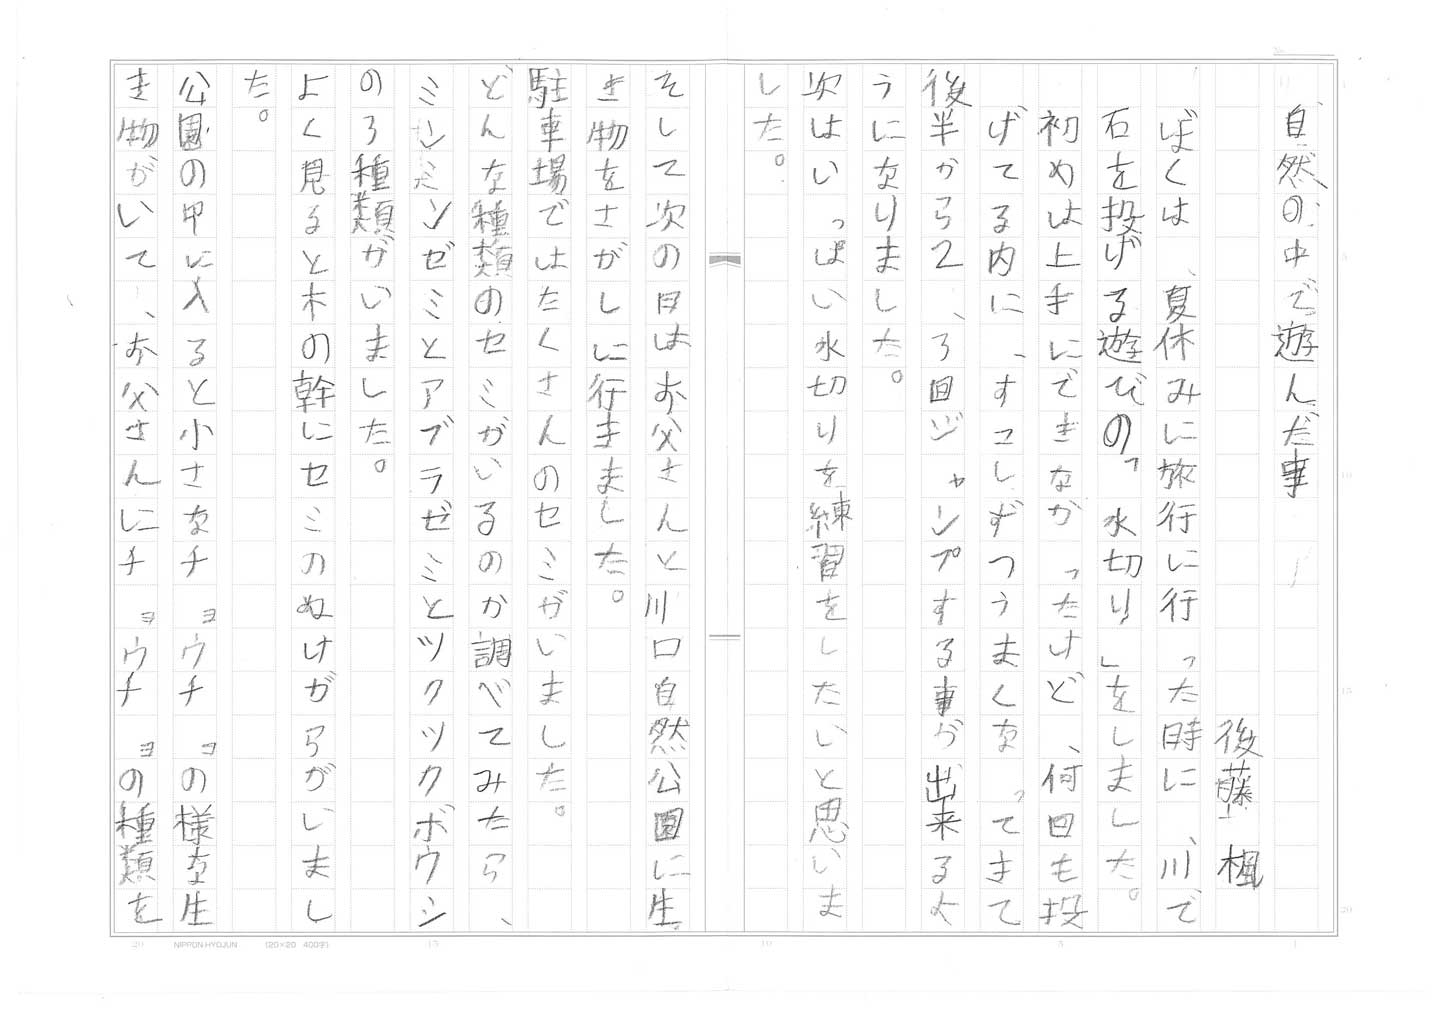 自然の中で遊んだ事
後藤 楓
ぼくは、夏休みに旅行に行った時に、川で
石を投げる遊びの「水切り」をしました。
初めは上手にできなかったけど、何回も投
げてる内に、すこしずつうまくなってきて
後半から2、3回ジャンプする事が出来るよ
うになりました。
次はいっぱい水切りを練習をしたいと思いま
した。
そして次の日はお父さんと川口自然公園に生
き物をさがしに行きました。
駐車場ではたくさんのセミがいました。
どんな種類のセミがいるのか調べてみたら、
ミンミンゼミとアブラゼミとツクツクボウシ
の3種類がいました。
よく見ると木の幹にセミのぬけがらがいまし
た。
公園の中に入ると小さなチョウチョの様な生
き物がいて、お父さんにチョウチョの種類を
NIPPON HYOJUN (20×20 400字)
1
5
10
15
20
1
5
10
15
20